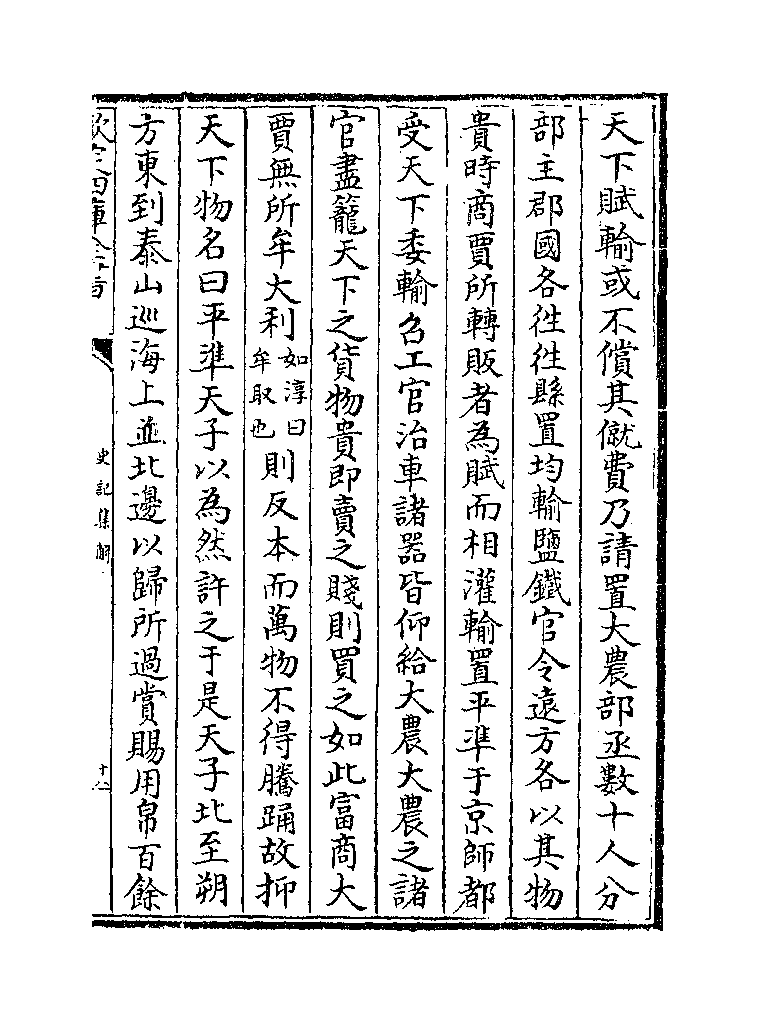 天下賦輸或不償其僦費乃請置大農部丞數十人分
部主郡國各往往縣置均輸鹽鐵官令遠方各以其物
貴時商賈所轉販者為賦而相灌輸置平準于京師都
受天下委輸召工官治車諸器皆仰給大農大農之諸
官盡籠天下之貨物貴即賣之賤則買之如此富商大
賈無所牟大利如淳曰牟取也則反本而萬物不得騰踊故抑
天下物名曰平準天子以為然許之于是天子北至朔
方東到泰山巡海上並北邊以歸所過賞賜用帛百餘
欽定四庫全書
史記集解